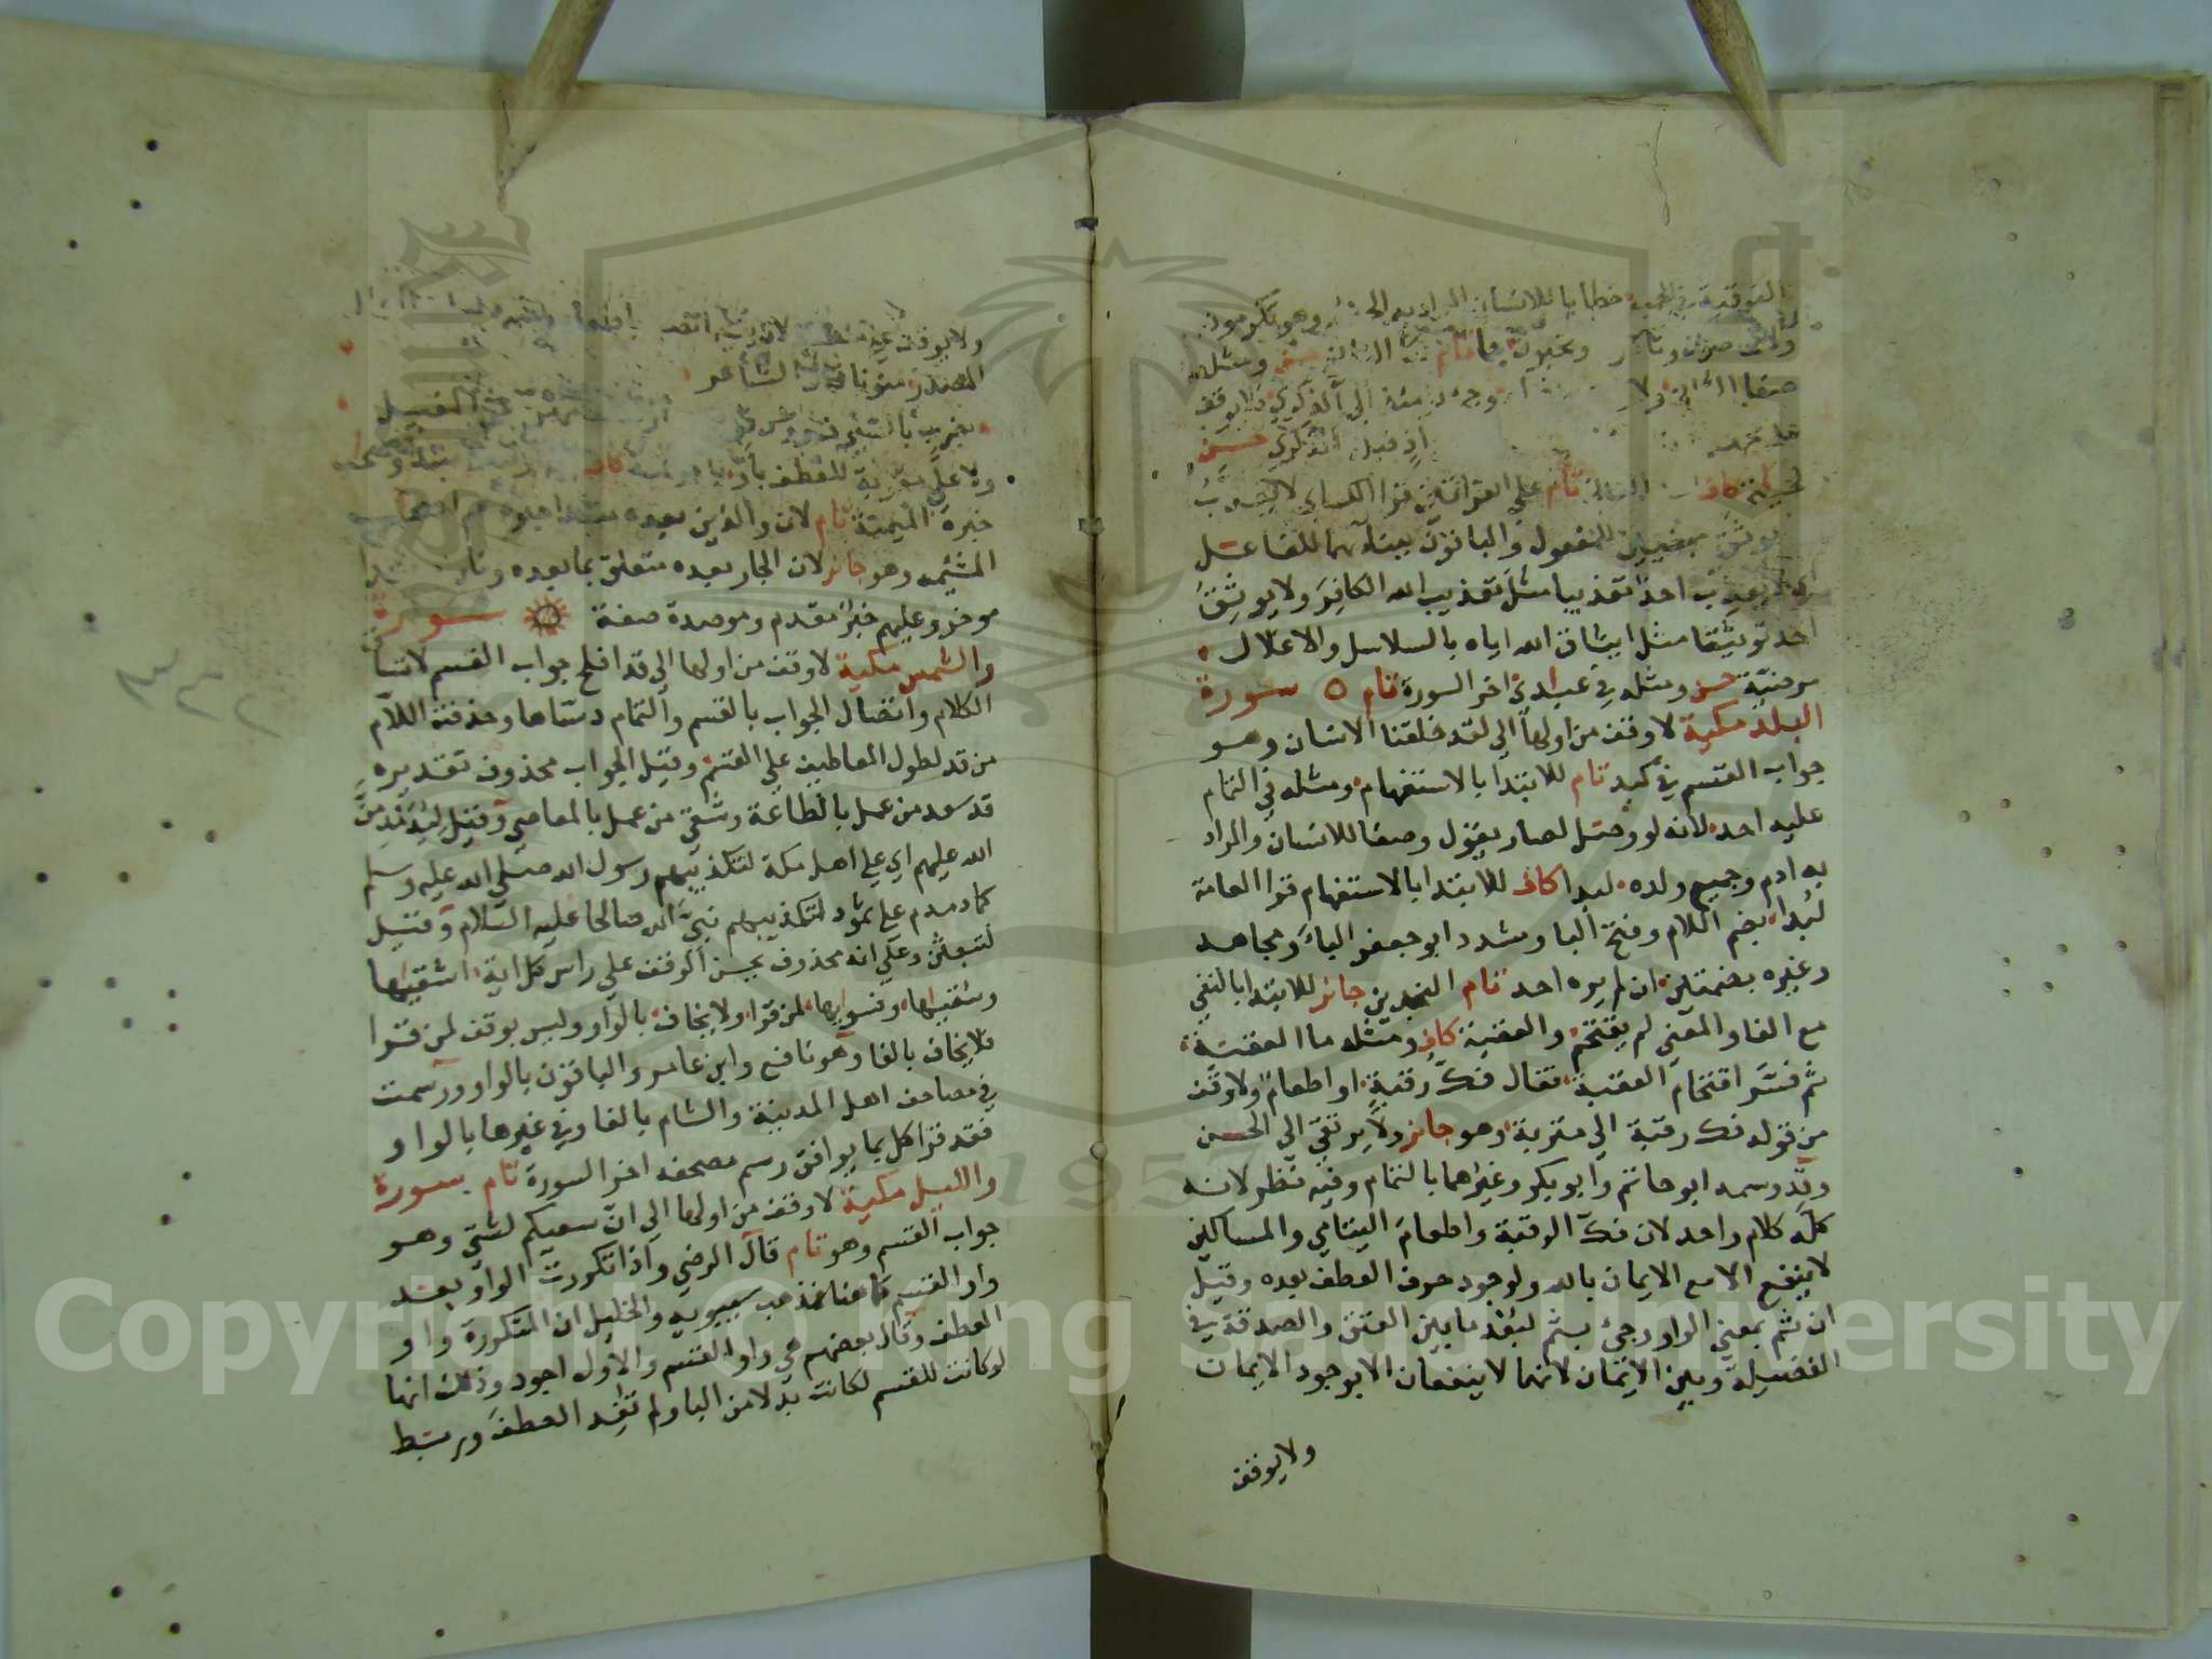 الفوقية في الجميع خطابا للانسان المراد به الجنس وهو تكرمون
ولا تحضون وتاكلون وتحبون جما تام
صفا الثاني ولا الي الذكري فلا يوقف
اذ قيل الذكري حسن
لحياتي كاف تام علي القراتين قرا الكساي لا يعذب
يوثق مبنيين للمفعول والباقون ببناهما للفاعل
اي لا يعذب احد تعذيبا مثل تعذيب الله الكافر ولا يوثق
احد توثيقا مثل ايثاق الله اياه بالسلاسل والاغلال
مرضية حسن ومثله في عبادي اخر السورة تام سورة
البلد مكية لا وقف من اولها الي لقد خلقنا الانسان وهو
جواب القسم في كبد تام للابتدا بالاستفهام ومثله في التمام
عليه احد لانه لو وصل لصار يقول وصفا للانسان والمراد
به ادم وجميع ولده لبدا كاف للابتدا بالاستفهام قرا العامة
لبدا بضم اللام وفتح البا وشدد ابو جعفر الباء ومجاهد
وغيره بضمتين ان لم يره احد تام النجدين جائز للابتدا بالنفي
مع الفا والمعني لم يقتحم والعقبة كاف ومثله ما العقبة
ثم فسر اقتحام العقبة فقال فك رقبة او اطعام ولا وقف
من قوله فك رقبة الي متربة وهو جائز ولا يرتقي الي الحسن
وقد وسمه ابو حاتم وابو بكر وغيرهما بالتمام وفيه نظر لانه
كله كلام واحد لان فك الرقبة واطعام اليتامي والمساكين
لا ينفع الا مع الايمان بالله ولوجود حرف العطف بعده وقيل
ان ثم بمعني الواو وجئ بثم لبعد ما بين العتق والصدقة في
الفضيلة وبين الايمان لانهما لا ينفعان الا بوجود الايمان
ولا يوقف
ولا يوقف
المصدر منونا الشاعر
بضرب بالسيف
ولا علي متربة للعطف باو
خبره الميمنة تام لان والذين بعده مبتدا خبره هم اصحاب
المشئمه وهو جائز لان الجار بعده متعلق بما بعده ونار مبتدا
موخر وعليهم خبر مقدم وموصدة صفة سورة
والشمس مكية لا وقف من اولها الي قد افلح جواب القسم لاتساق
الكلام واتصال الجواب بالقسم والتمام دساها وحذفت اللام
من قد لطول المعاطيف علي القسم وقيل الجواب محذوف تقديره
قد سعد من عمل بالطاعة وشقي من عمل بالمعاصي وقيل ليدمدمن
الله عليهم اي علي اهل مكة لتكذيبهم رسول الله صلي الله عليه وسلم
كما دمدم علي ثمود لتكذيبهم نبي الله صالحا عليه السلام وقيل
لتبعثن وعلي انه محذوف يحسن الوقف علي راس كل اية اشقيها
وسقيها وفسويها لمن قرا ولا يخاف بالواو وليس بوقف لمن قرا
فلا يخاف بالفا وهو نافع وابن عامر والباقون بالواو ورسمت
في مصاحف اهل المدينة والشام بالفا وفي غيرها بالواو
فقد قرا كل بما يوافق رسم مصحفه اخر السورة تام سورة
والليل مكية لا وقف من اولها الي ان سعيكم لشتي وهو
جواب القسم وهو تام قال الرضي واذا تكررت الواو بعد
واو القسم كما هنا فمذهب سيبويه والخليل ان المتكررة واو
العطف وقال بعضهم هي واو القسم والاول اجود وذلك انها
لو كانت للقسم لكانت بدلا من البا ولم تفد العطف وربط
Copyright © King Saud University
1957